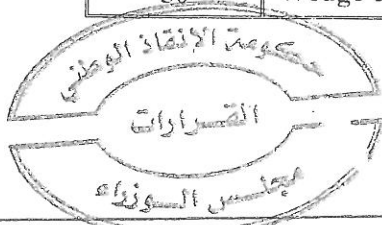 حكومة الانقاذ الوطني
القرارات
مجلس الوزراء